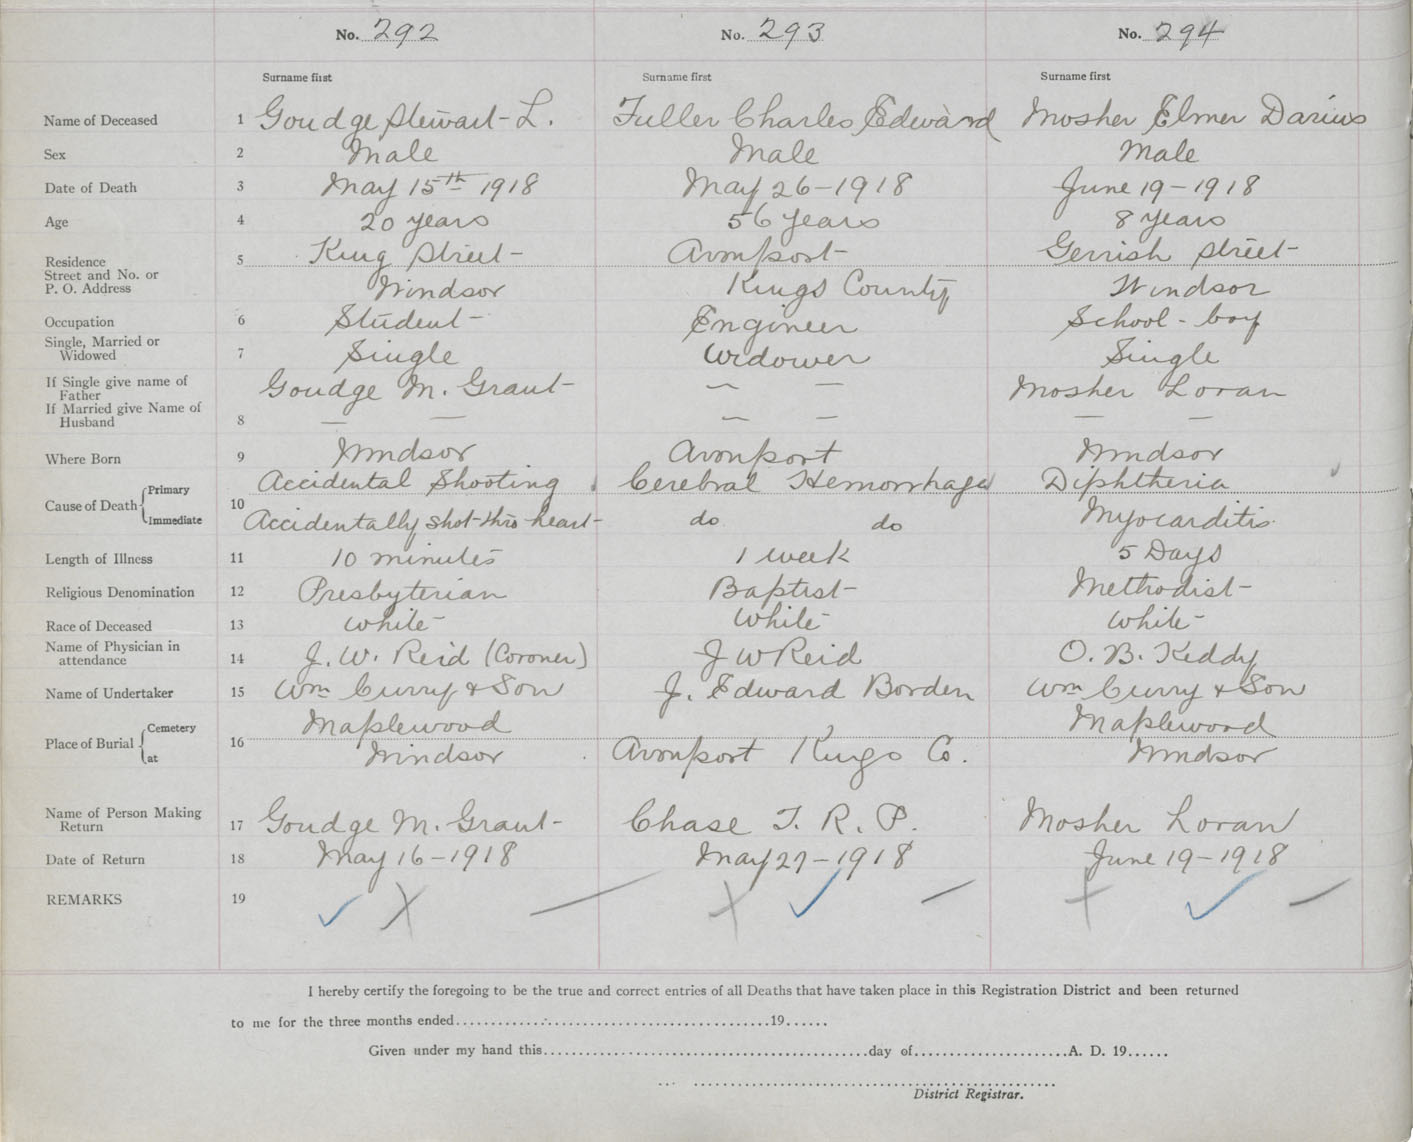 No. 292 No. 293 No. 294
Surname first Surname first Surname first
Name of Deceased 1 Goudge Stewart L. Fuller Charles Edward Mosher Elmer Darius
Sex 2 Male Male Male
Date of Death 3 May 15th 1918 May 26-1918 June 19-1918
Age 4 20 years 56 years 8 years
Residence 5 King Street Avonport Gerrish Street
Street and No. or
P. O. Address Windsor Kings County Windsor
Occupation 6 Student Engineer School-boy
Single, Married or
Widowed 7 Single Widower Single
If Single give name of
Father Goudge M. Grant — — Mosher Loran
If Married give Name of
Husband 8 — — — — — —
Where Born 9 Windsor Avonport Windsor
Cause of Death Primary 10 Accidental Shooting Cerebral Hemorrhage Diphtheria
Immediate Accidentally shot thro heart do do Myocarditis
Length of Illness 11 10 minutes 1 week 5 Days
Religious Denomination 12 Presbyterian Baptist Methodist
Race of Deceased 13 White White White
Name of Physician in
attendance 14 J. W. Reid (Coroner) J W Reid O. B. Keddy
Name of Undertaker 15 Wm Curry & Son J. Edward Borden Wm Curry & Son
Place of Burial Cemetery 16 Maplewood Maplewood
at Windsor Avonport Kings Co. Windsor
Name of Person Making
Return 17 Goudge M. Grant Chase T. R. P. Mosher Loran
Date of Return 18 May 16-1918 May 27-1918 June 19-1918
REMARKS 19
I hereby certify the foregoing to be the true and correct entries of all Deaths that have taken place in this Registration District and been returned
to me for the three months ended..........19......
Given under my hand this..........day of..........A. D. 19......
District Registrar.